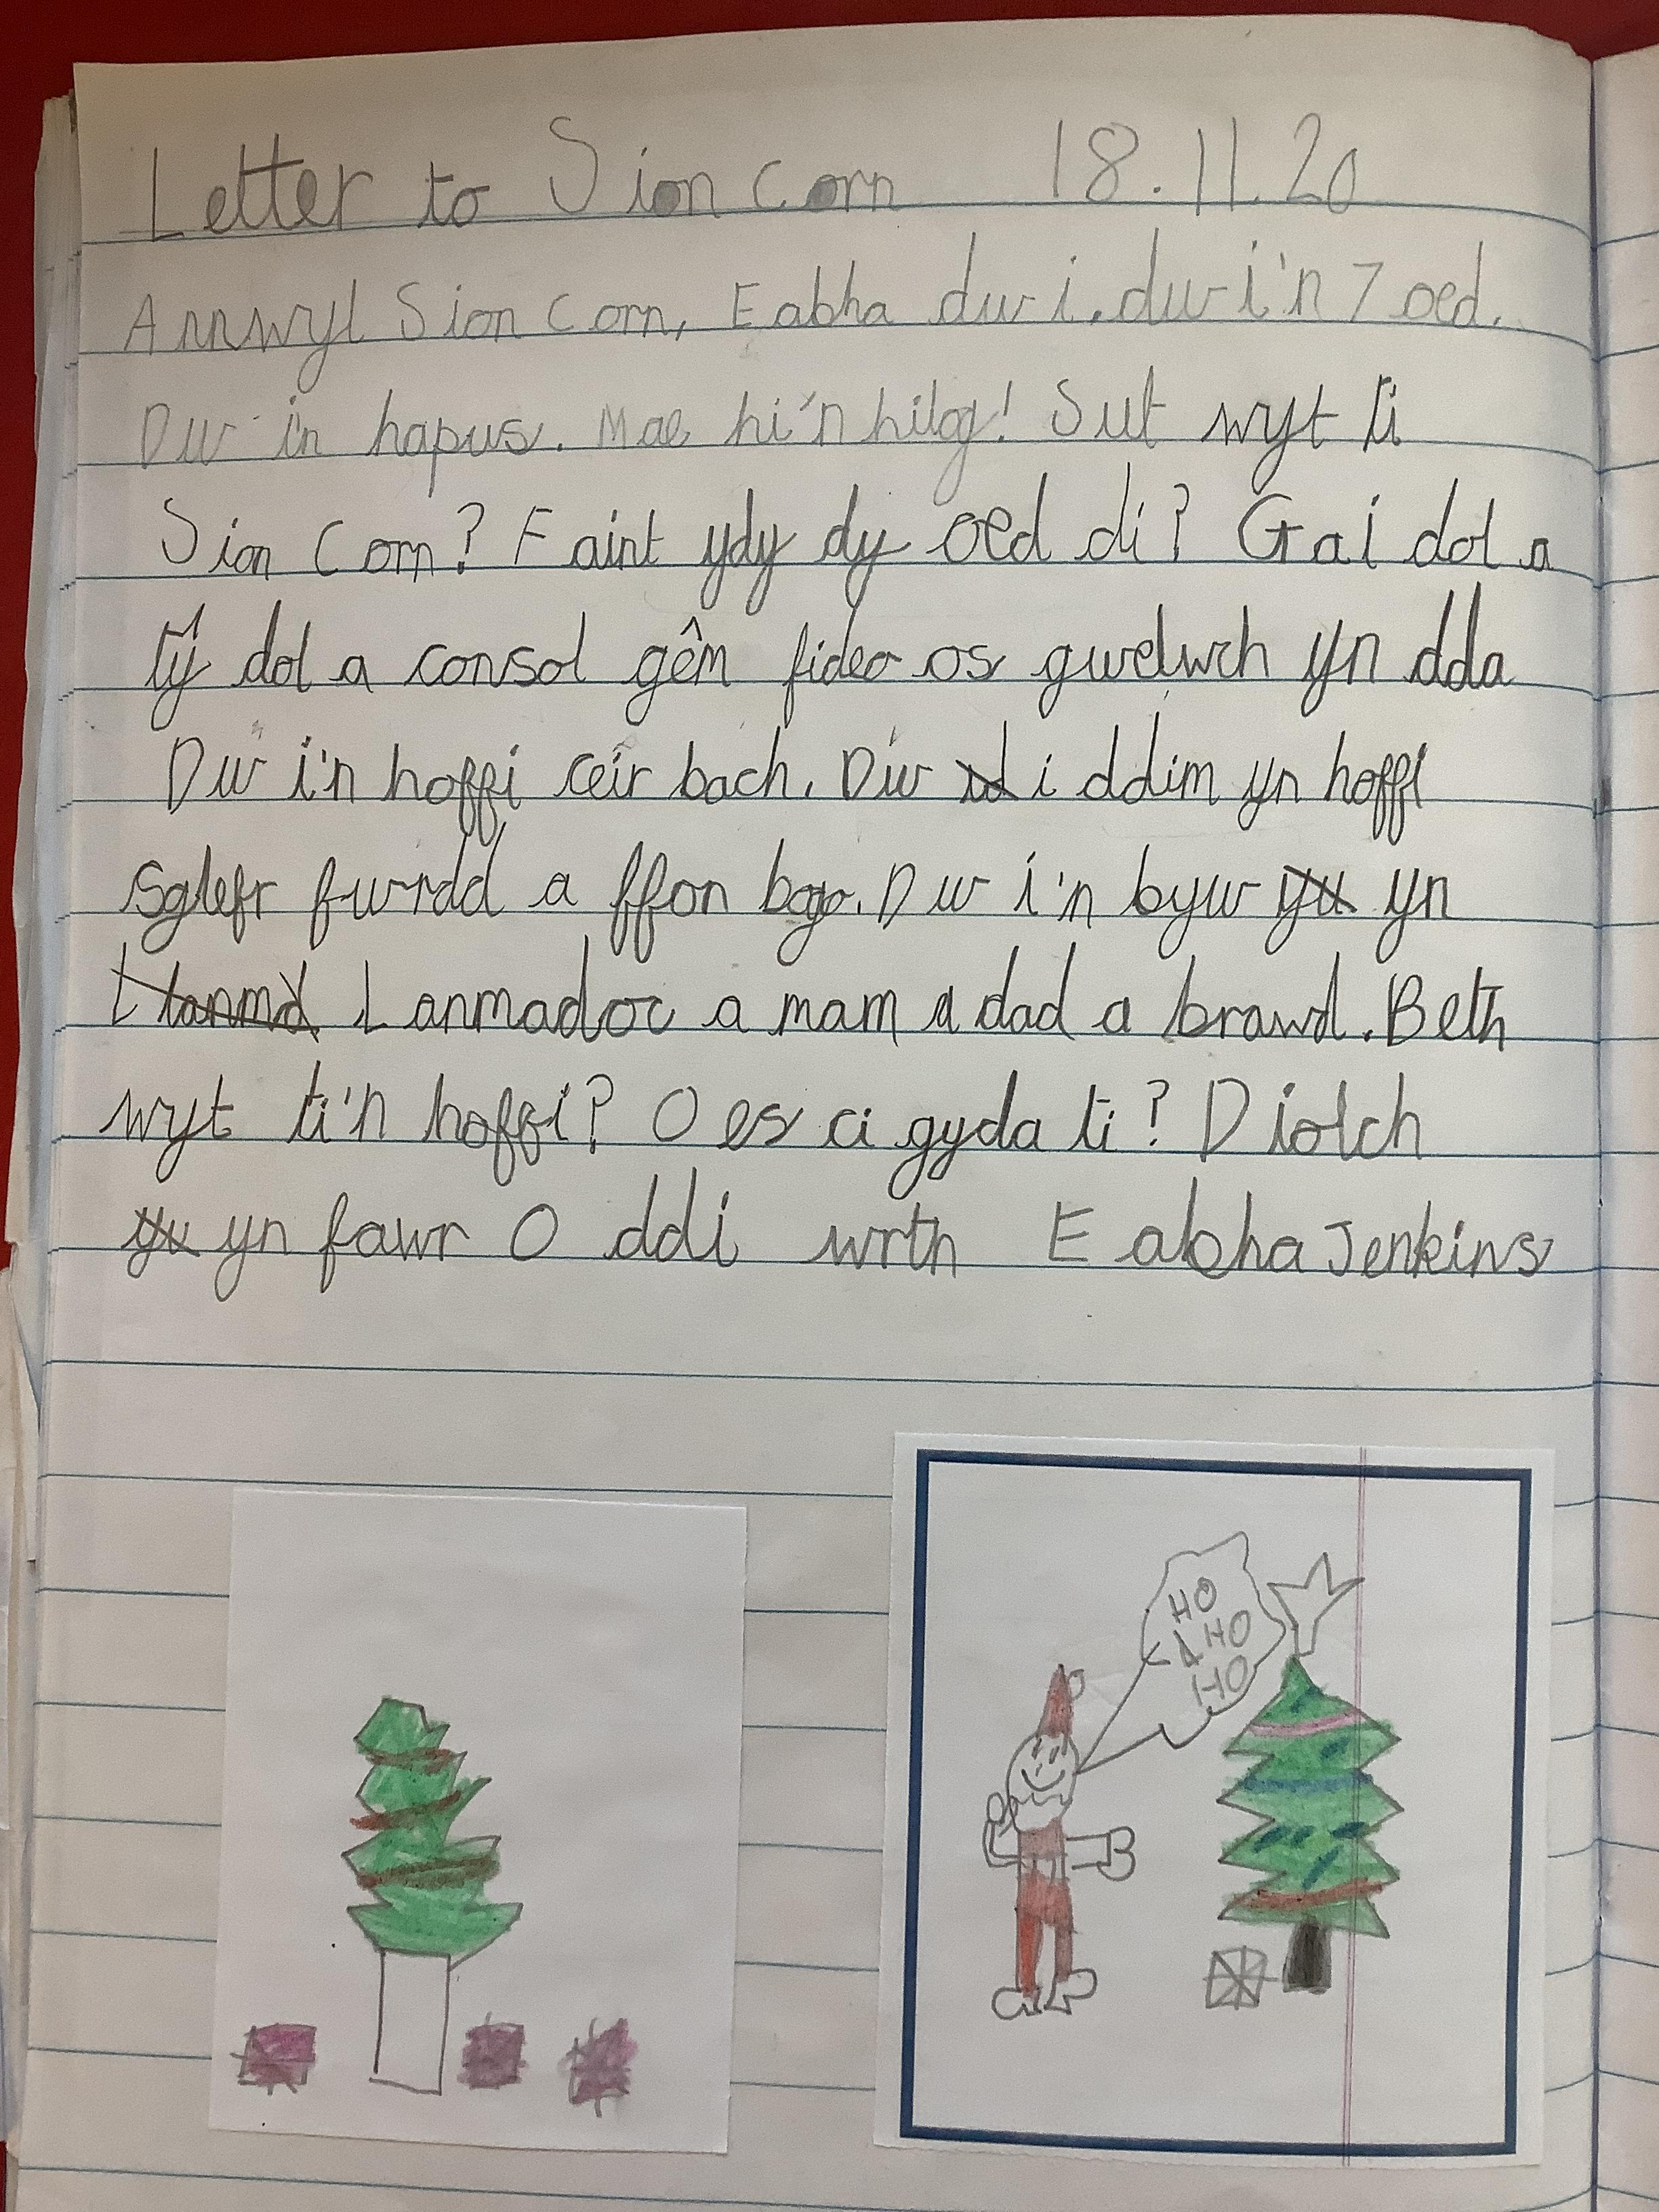 Letter to Sion Corn 18.11.20
Annwyl Sion Corn, Eabha dw i. dw i'n 7 oed.
Dw i'n hapus. Mae hi'n hilog! Sut wyt ti
Sion Corn? Faint ydy dy oed di? Ga i dol a
tŷ dol a consol gêm fideo os gwelwch yn dda
Dw i'n hoffi ceir bach. Dw i ddim yn hoffi
sglefr fwrdd a ffon bogo. Dw i'n byw yn
Lanmadoc a mam a dad a brawd. Beth
wyt ti'n hoffi? Oes ci gyda ti? Diolch
yn fawr O ddi wrth Eabha Jenkins
HO
HO
HO